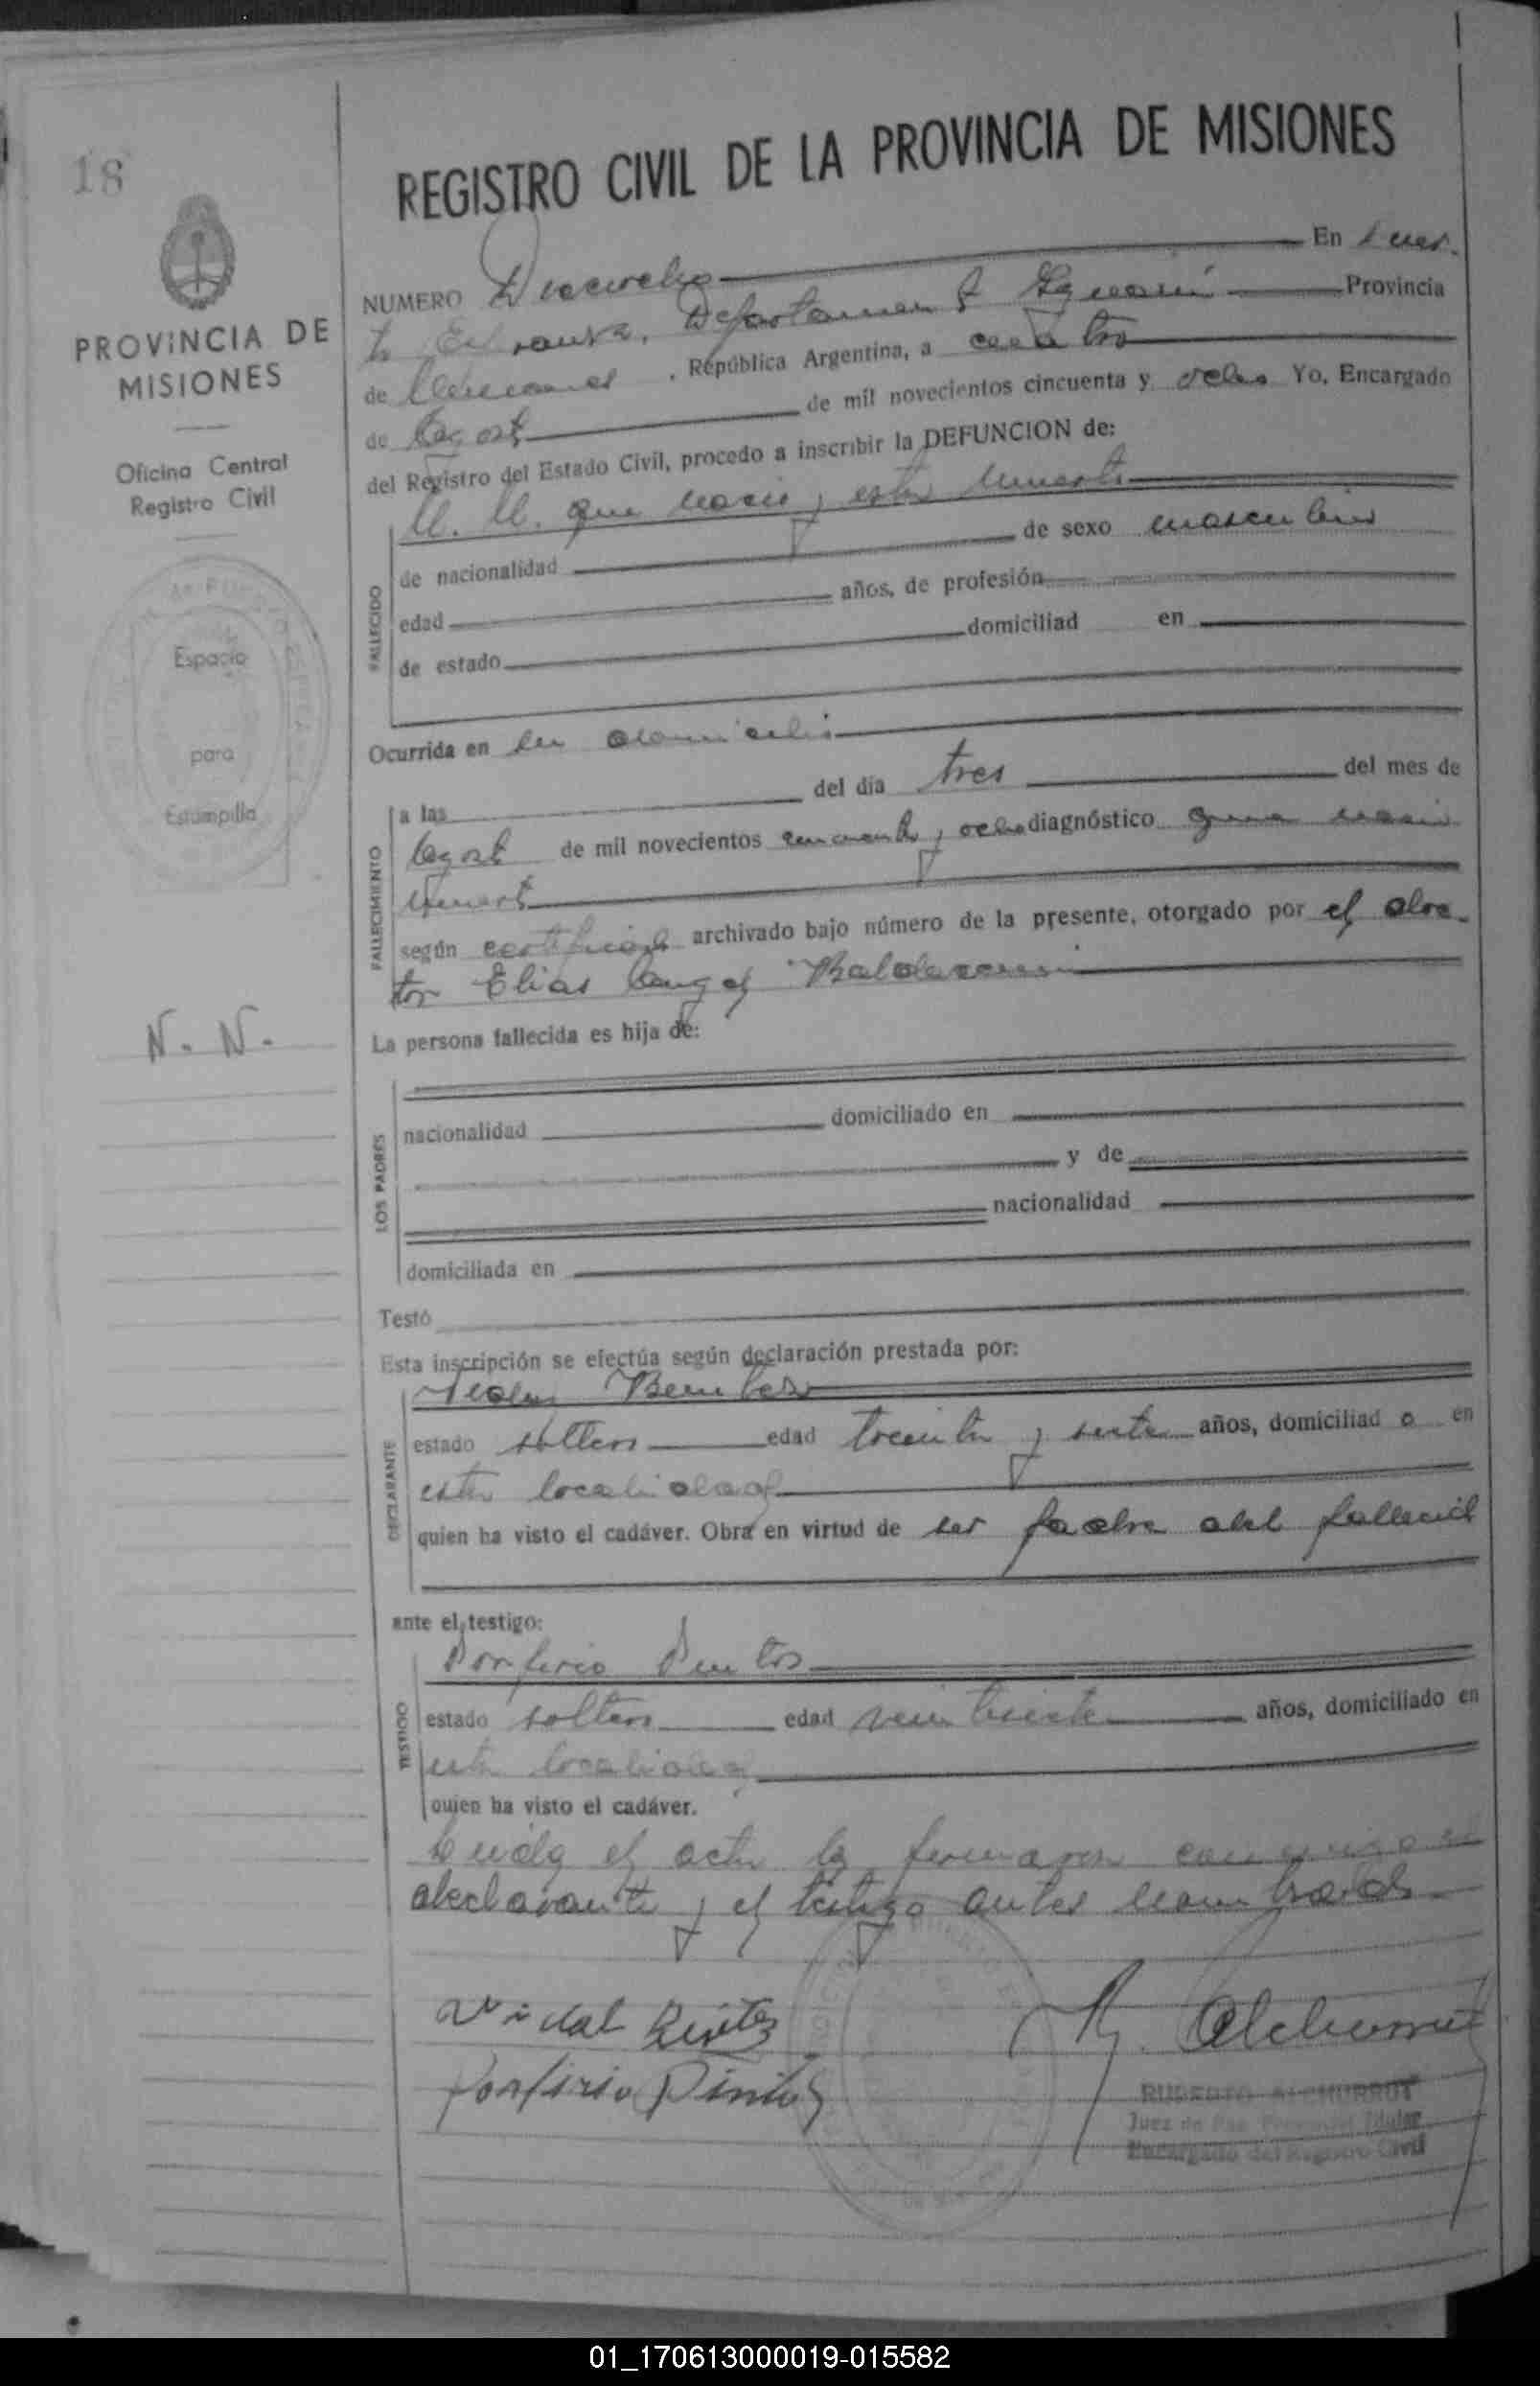 18
PROVINCIA DE
MISIONES
Oficina Central
Registro Civil
Espacio
para
Estampilla
N. N.
REGISTRO CIVIL DE LA PROVINCIA DE MISIONES
NUMERO Dieciocho En Puer-
to Esperanza, Departamento Iguazú Provincia
de Misiones, República Argentina, a cuatro
de Agosto de mil novecientos cincuenta y ocho Yo, Encargado
del Registro del Estado Civil, procedo a inscribir la DEFUNCION de:
FALLECIDO
N. N. que nacio y esta muerto
de nacionalidad de sexo masculino
edad años, de profesión
de estado domiciliad en
Ocurrida en su domicilio
FALLECIMIENTO
a las del día tres del mes de
Agosto de mil novecientos cincuenta y ocho diagnóstico que nacio
muerto
según certificado archivado bajo número de la presente, otorgado por el doc-
tor Elias Angel
La persona fallecida es hija de:
LOS PADRES
nacionalidad domiciliado en
y de
nacionalidad
domiciliada en
Testó
Esta inscripción se efectúa según declaración prestada por:
DECLARANTE
estado soltero edad treinta y siete años, domiciliad o en
esta localidad
quien ha visto el cadáver. Obra en virtud de ser padre del fallecido
ante el testigo:
TESTIGO
Porfirio Pintos
estado soltero edad veintisiete años, domiciliado en
esta localidad
quien ha visto el cadáver.
Leida el acta la firmaron conmigo el
declarante y el testigo antes nombrados
Vidal Benitez
Porfirio Pintos
R. Alchurrut
RUPERTO ALCHURRUT
Juez de Paz Titular
Encargado del Registro Civil
01_170613000019-015582